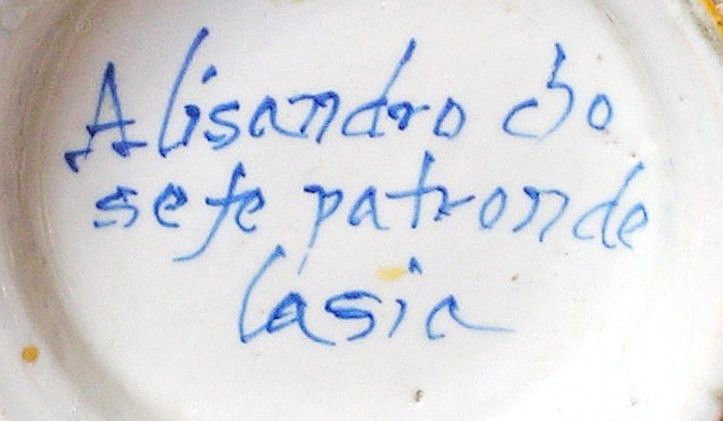 Alisandro cho
sefe patronde
lasia